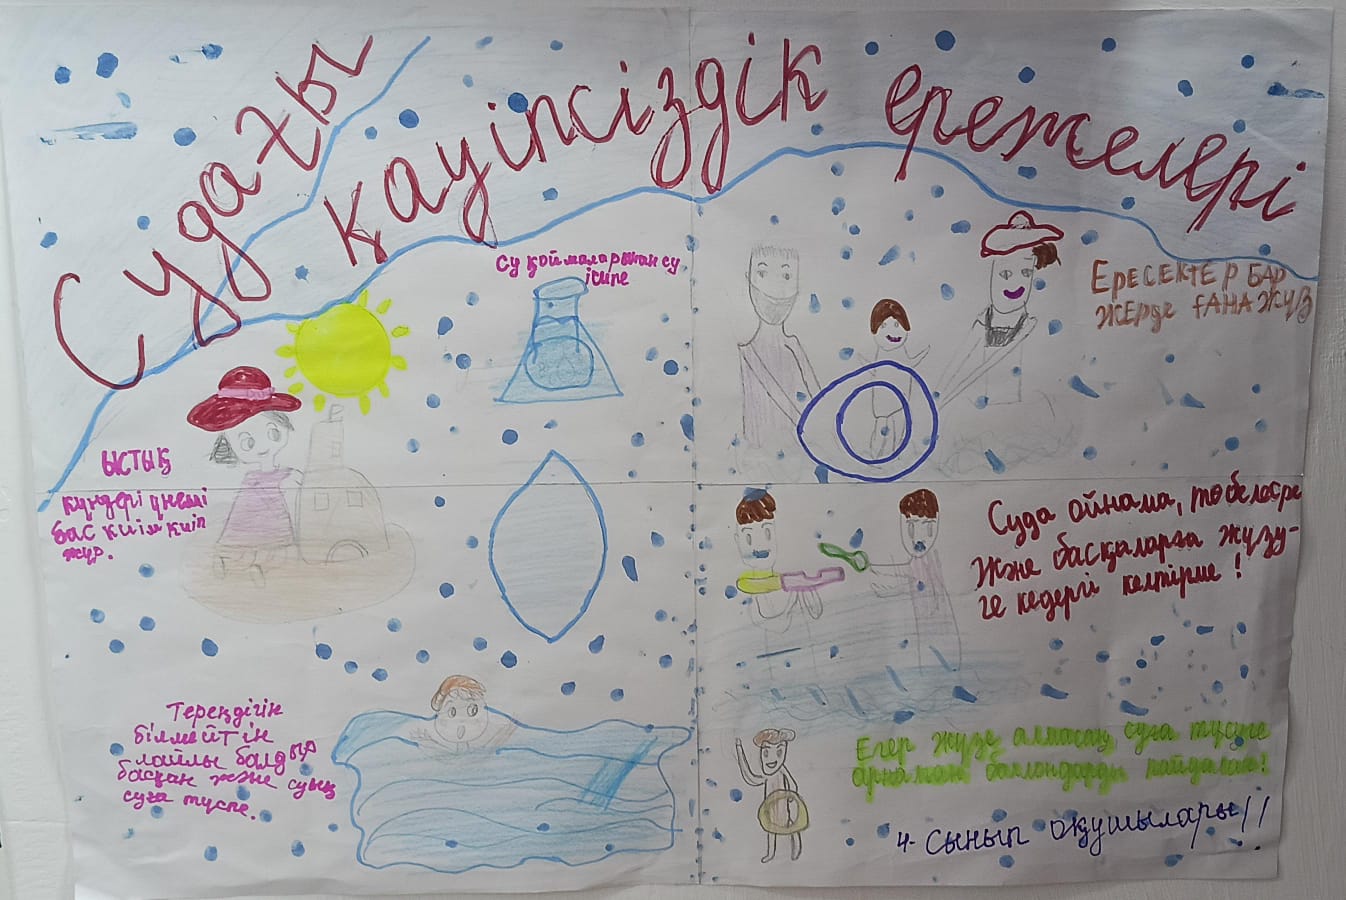 Судағы қауіпсіздік ережелері
Су қоймаларынан су
ішпе
Ересектер бар
жерде ғана жүз
Ыстық
күндері үнемі
бас киім киіп
жүр.
Суда ойнама, төбелеспе
және басқаларға жүзу-
ге кедергі келтірме!
Тереңдігін
білмейтін
лайлы балдыр
басқан және суық
суға түспе.
Егер жүзе алмасаң суға түсуге
арналған баллондарды пайдалан!
4-сынып оқушылары!!